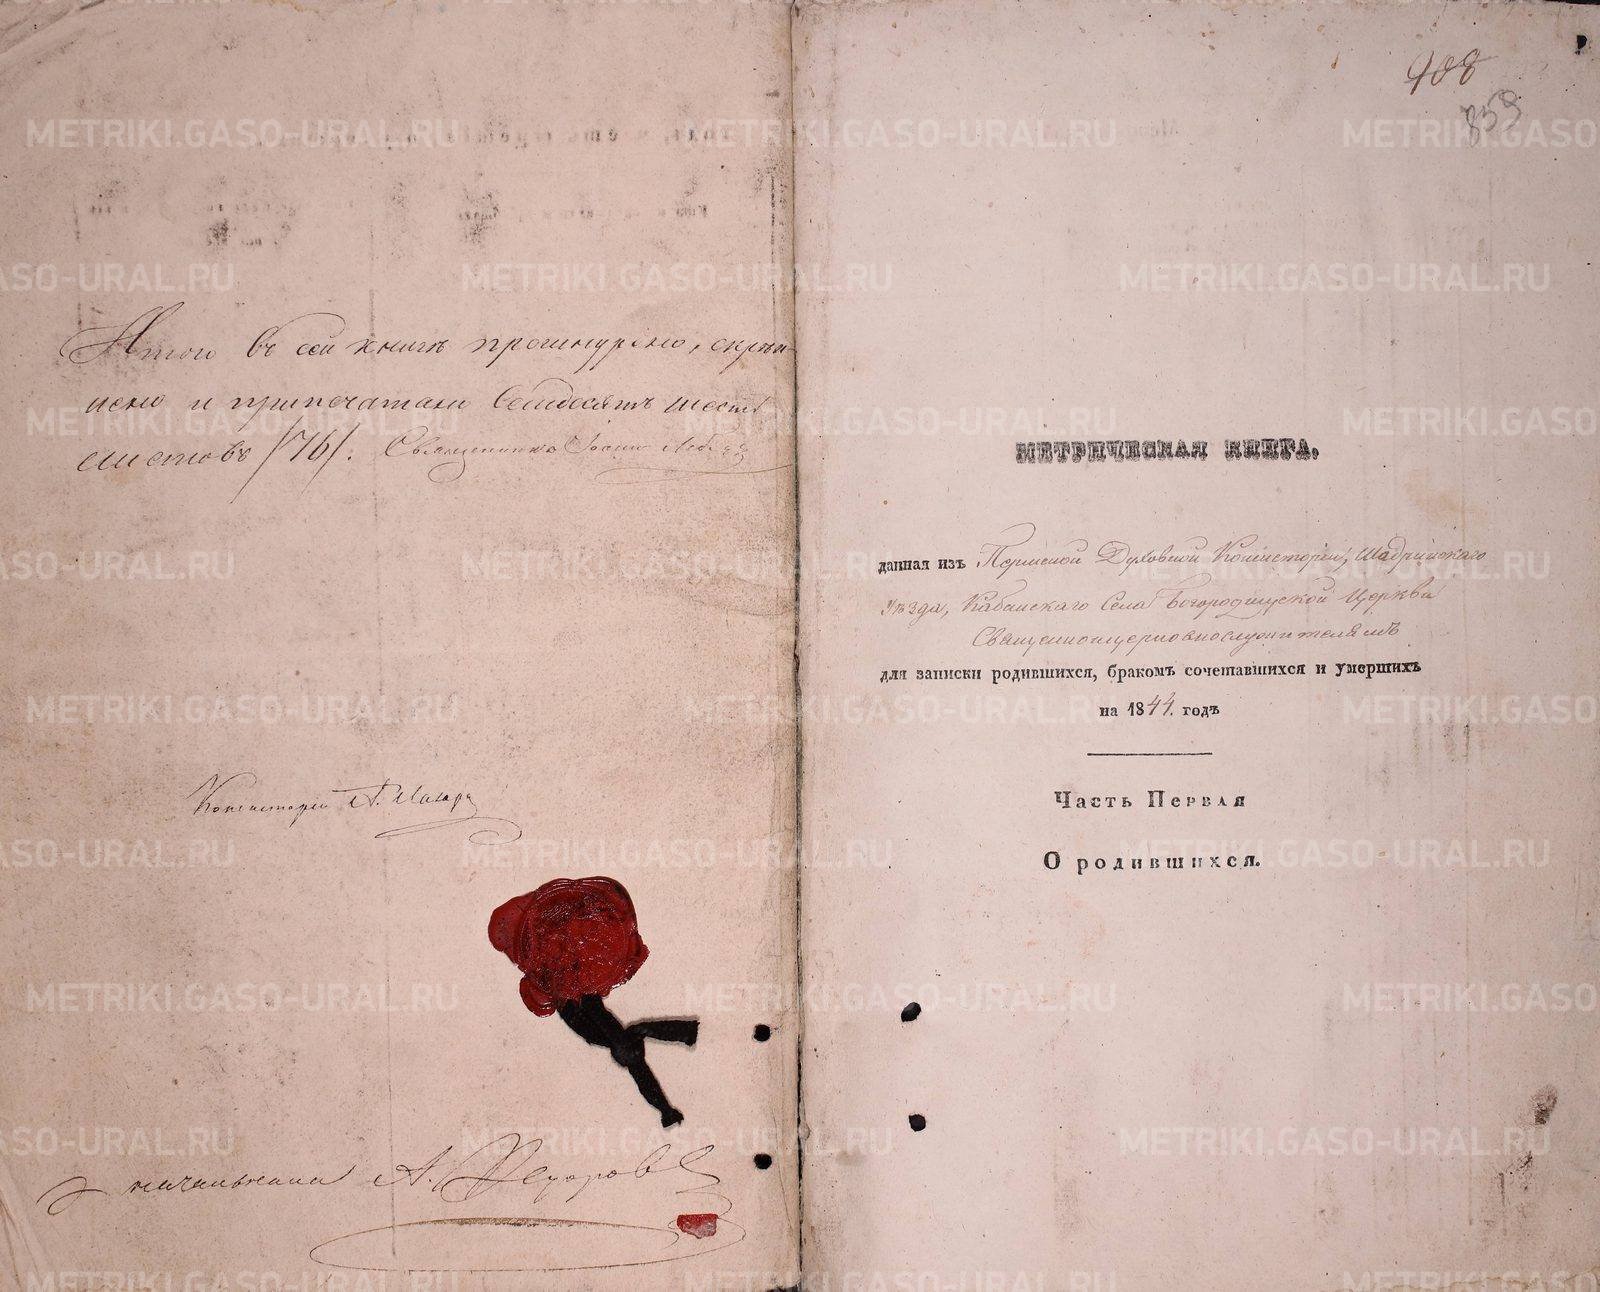 Итого въ сей книгѣ прошнурено, скрѣп-
лено и припечатано Семдесятъ шесть
листовъ /76/. Священникъ
Консисторіи
А. Федоровъ
908
859
МЕТРИЧЕСКАЯ КНИГА,
данная изъ Пермской Духовной Консисторіи, Шадринскаго
Уѣзда, Кабанскаго Села Богородицкой Церкви
Священноцерковнослужителямъ
для записки родившихся, бракомъ сочетавшихся и умершихъ
на 1844. годъ
Часть Первая
О родившихся.
METRIKI.GASO-URAL.RU